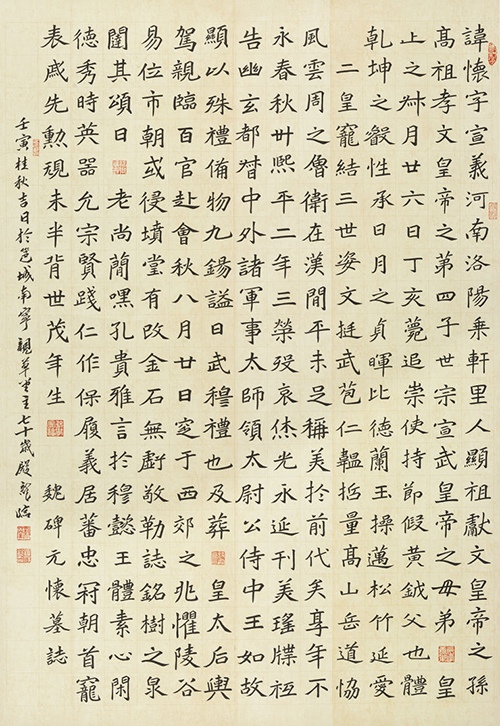 諱懷宇宣義河南洛陽乘軒里人顯祖獻文皇帝之孫
髙祖孝文皇帝之第四子世宗宣武皇帝之母弟 皇
上之叔月廿六日丁亥薨追崇使持節假黄鉞父也體
乾坤之叡性承日月之貞暉比德蘭玉操邁松竹延愛
二皇寵結三世姿文挺武苞仁韞哲量髙山岳道協
風雲周之魯衛在漢間平未足稱美扵前代矣享年不
永春秋卅熙平二年三榮殁哀烋光永延刊美瑤牒祏
告幽玄都督中外諸軍事太師領太尉公侍中王如故
顯以殊禮備物九錫諡曰武穆禮也及葬 皇太后輿
駕親臨百官赴會秋八月廿日窆于西郊之兆懼陵谷
易位市朝或侵墳堂有改金石無虧敬勒誌銘樹之泉
闥其頌曰 老尚簡嘿孔貴雅言扵穆懿王體素心閑
德秀時英器允宗賢踐仁作保履義居蕃忠冠朝首寵
表戚先勳覌未半背世茂年生 魏碑元懷墓誌
壬寅桂秋吉日於邕城南寧親草堂主七十歲殷臨